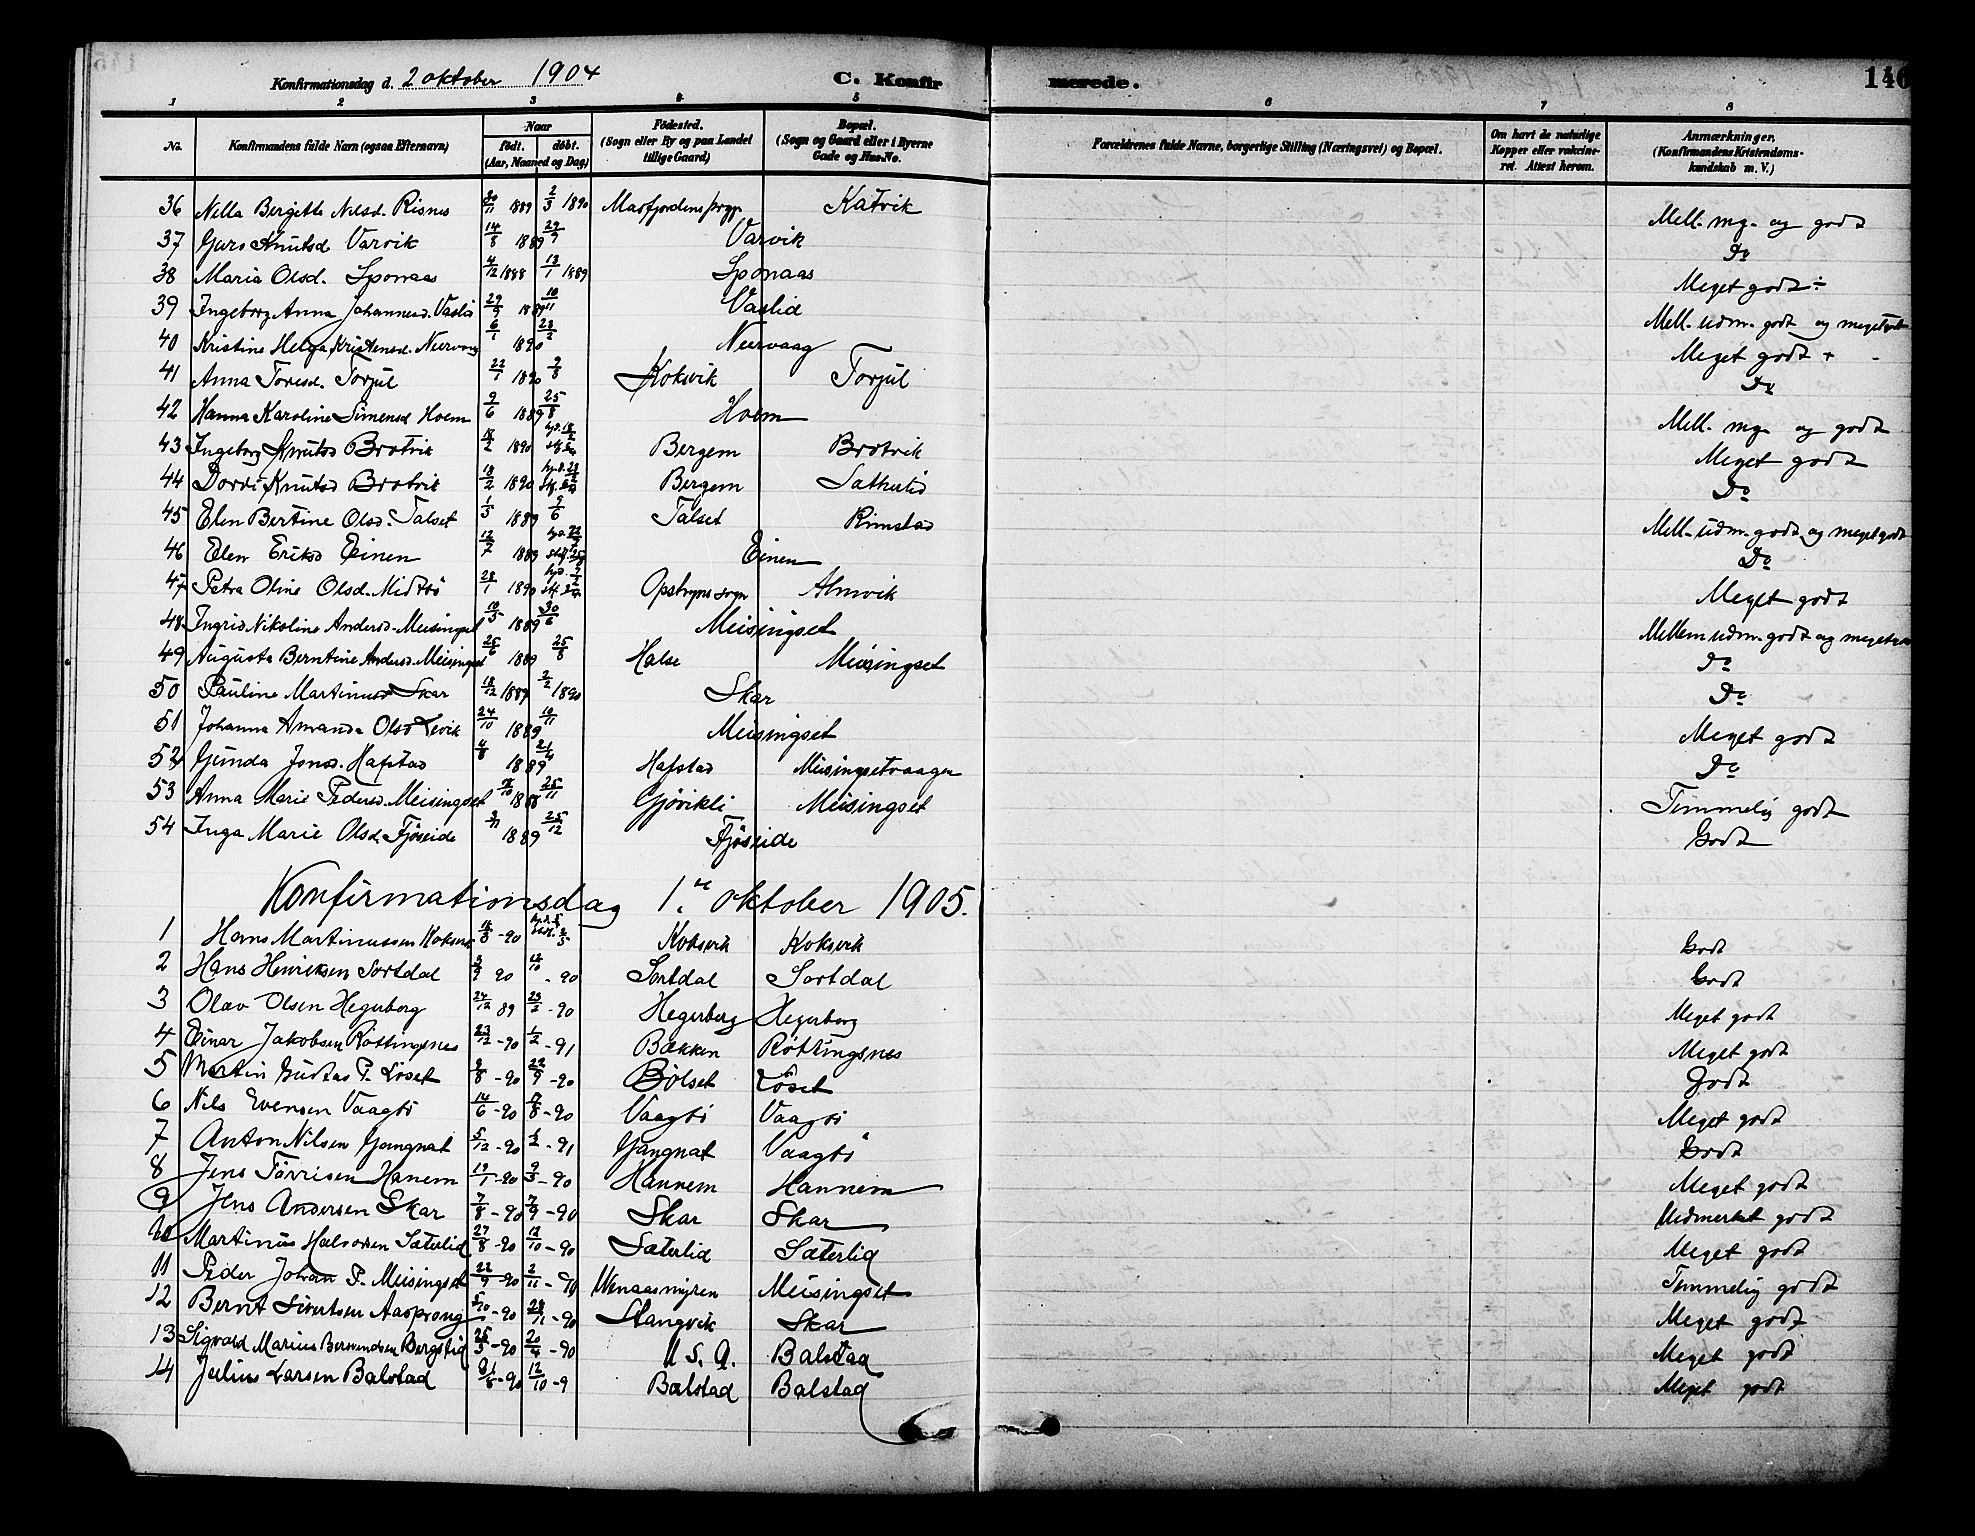 Konfirmationsdag d. 2 oktober 1904 C. Konfirmerede. 146
1 2 3 4 5 6 7 8
No. Konfirmandens fulde Navn (ogsaa Efternavn) Naar født. døbt. (Aar, Maaned og Dag) Fødested. (Sogn eller By og paa Landet tillige Gaard) Bopæl. (Sogn og Gaard eller i Byerne Gade og Hus-No. Forældrenes fulde Navne, borgerlige Stilling (Næringsvei) og Bopæl. Om havt de naturlige Kopper eller vakcineret. Attest herom. Anmærkninger. (Konfirmandens Kristendomskundskab m. V.)
36 Nella Bergitte Nilsd. Risnes 30/11 1889 2/3 1890 Masfjordens prgj. Katvik Mell. mg. og godt
37 Guro Knutsd Varvik 14/8 1889 29/9 Varvik Do
38 Maria Olsd. Sponaas 4/12 1888 13/1 1889 Sponaas Meget godt÷
39 Ingeborg Anna Johannesd. Vaslid 29/9 1889 10/11 Vaslid Mell. udm. godt og meget godt
40 Kristine Helga Kristensd. Neervaag 6/1 1890 23/2 Neervaag Meget godt +
41 Anna Toresd. Torjul 22/1 1890 Koksvik Torjul Do
42 Hanna Karoline Simensd Hoem 9/6 1889 25/8 Hoem Mell. mg. og godt
43 Ingeborg Knutsd Brotvik 18/2 1890 Bergem Brotvik Meget godt
44 Dordi Knutsd Brotvik 18/2 1890 Bergem Sæterlid Do
45 Elen Bertine Olsd. Talset 1889 9/6 Talset Rimstad Mell. udm. godt og meget godt
46 Elen Eriksd Einen 12/7 1889 Einen Do
47 Petra Oline Olsd. Midtbö 28/1 1890 Opstryns sogn Almvik Meget godt
48 Ingrid Nikoline Andersd. Meisingset 1889 30/6 Meisingset Mellem udm. godt og meget godt
49 Augusta Berntine Andersd. Meisingset 25/6 1889 25/8 Halse Meisingset Do
50 Pauline Martinusd Skar 18/12 1889 2/2 1890 Skar Do
51 Johanna Amanda Olsd Levik 24/10 1889 10/11 Meisingset Meget godt
52 Gunda Jonsd. Hafstad 4/8 1889 Hafstad Meisingsetvaagen Do
53 Anna Marie Pedersd. Meisingset 1888 25/11 Gjøvikli Meisingset Temmelig godt
54 Inga Marie Olsd. Fjøseide 1889 25/12 Fjøseide Godt
Konfirmationsdag 1.ste oktober 1905.
1 Hans Martinussen Koksvik -90 Koksvik Koksvik Godt
2 Hans Henriksen Sortdal 90 -90 Sortdal Sortdal Godt
3 Olav Olsen Hegerberg 24/12 89 23/2 -90 Hegerberg Hegerberg Meget godt
4 Einar Jakobsen Röttingsnes 23/12 -90 1/2 -91 Bækken Røttingsnes Meget godt
5 Martin Gustav P. Løset -90 22/9 -90 Bölset Löset Godt
6 Nils Evensen Vaagbö 14/6 -90 -90 Vaagbö Vaagbö Meget godt
7 Anton Nilsen Gangnat 5/12 -90 1/2 -91 Gangnat Vaagbö Godt
8 Jens Törrisen Hanem 19/1 -90 9/3 -90 Hannem Hannem Meget godt
9 Jens Andersen Skar 7/8 -90 7/9 -90 Skar Skar Udmerket godt
10 Martinus Halvorsen Sæterlid 27/8 -90 12/10 -90 Sæterlid Sæterlid Meget godt
11 Peder Johan P. Meisingset 22/9 -90 2/11 -90 Wenaasmyren Meisingset Temmelig godt
12 Bernt Sivertsen Aasprong 5/10 -90 -90 Stangvik Skar Meget godt
13 Sigvald Marius Bernundsen Bergslid 25/3 -90 20/4 -90 U. S. A. Balstad Meget godt
14 Julius Larsen Balstad -90 12/10 -9 Balstad Balstad Meget godt